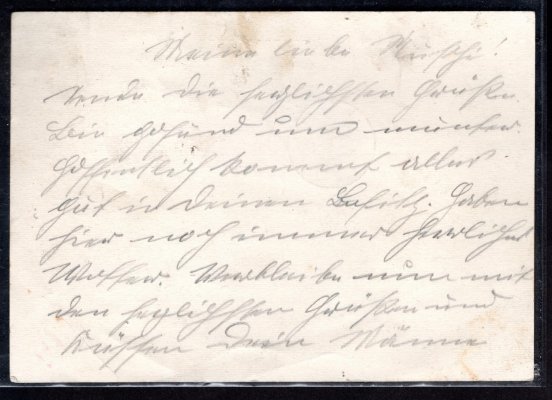 Meine liebe Muschi!
Sende die herzlichsten Grüße.
Bin gesund und munter.
Hoffentlich kommt alles
gut in deinen Besitz. Haben
hier noch immer herrliches
Wetter. Verbleibe nun mit
den herzlichsten Grüßen und
Küssen Dein Männe